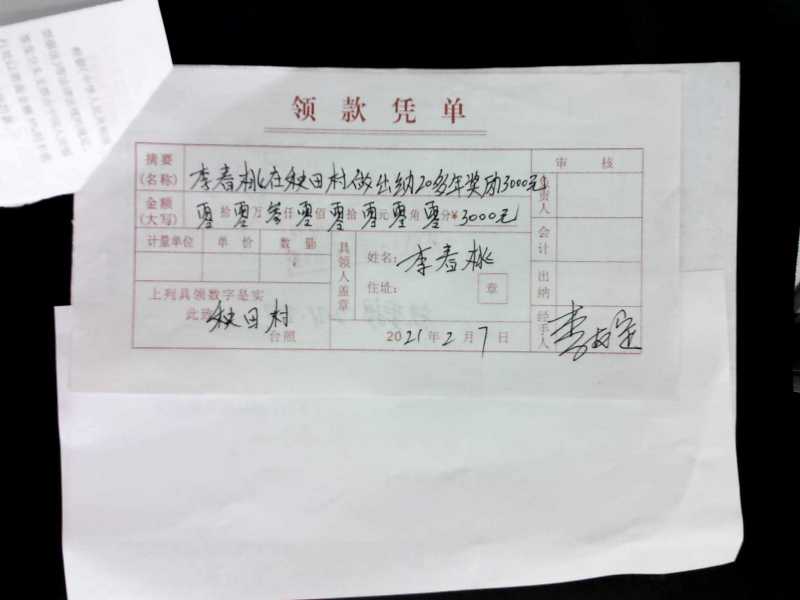 领款凭单
摘要(名称) 李春桃在秧田村做出纳20多年奖励3000元 审核
金额(大写) 零拾零万叁仟零佰零拾零元零角零分¥3000元 负责人
计量单位 单价 数量 具领人盖章 姓名:李春桃 会计
住址: 章 出纳
上列具领数字是实
此致 秧田村
台照 2021年2月7日 经手人